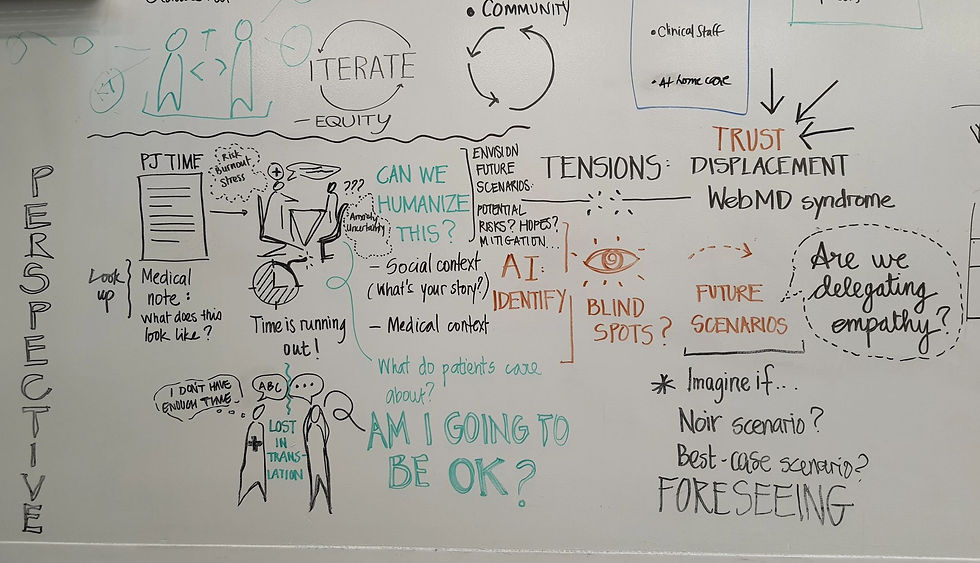 • COMMUNITY
T
< >
ITERATE
– EQUITY
• Clinical Staff
• At home care
PERSPECTIVE
PJ TIME
Risk
Burnout
Stress
???
Anxiety
Uncertainty
Look
up
Medical
note:
what does this
look like?
Time is running
out!
CAN WE
HUMANIZE
THIS?
– Social context
(What's your story?)
– Medical context
What do patients care
about?
AM I GOING TO
BE OK?
I DON'T HAVE
ENOUGH TIME.
ABC
...
LOST
IN
TRANS-
LATION
ENVISION
FUTURE
SCENARIOS:
POTENTIAL
RISKS? HOPES?
MITIGATION...
AI:
IDENTIFY
BLIND
SPOTS?
FUTURE
SCENARIOS
TENSIONS:
TRUST
DISPLACEMENT
WebMD syndrome
Are we
delegating
empathy?
* Imagine if...
Noir scenario?
Best-case scenario?
FORESEEING